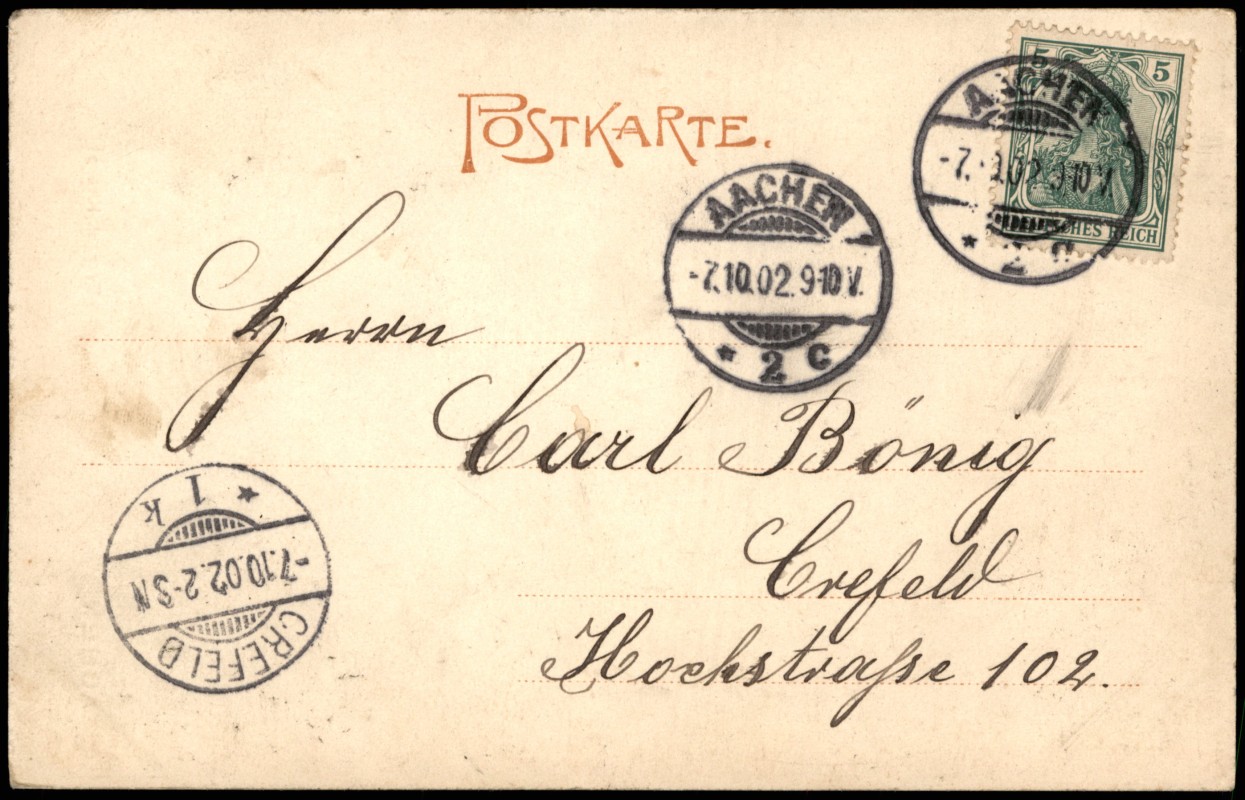 POSTKARTE.
5 5
AACHEN
-7.10.02.9-10V.
* 2 C
DEUTSCHES REICH
AACHEN
-7.10.02.9-10V.
* 2 C
Herrn
Carl Bönig
Crefeld
Hochstraße 102.
* 1 k
-7.10.02.2-3N
CREFELD